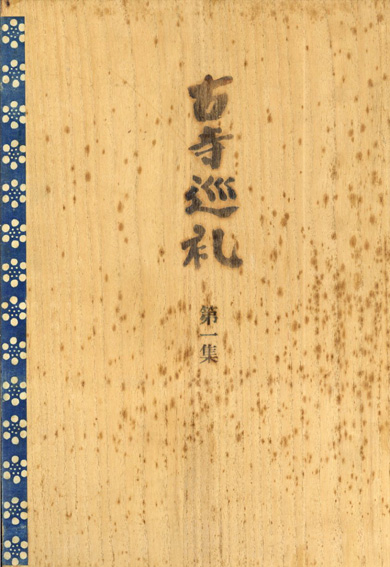 古寺巡礼
第一集